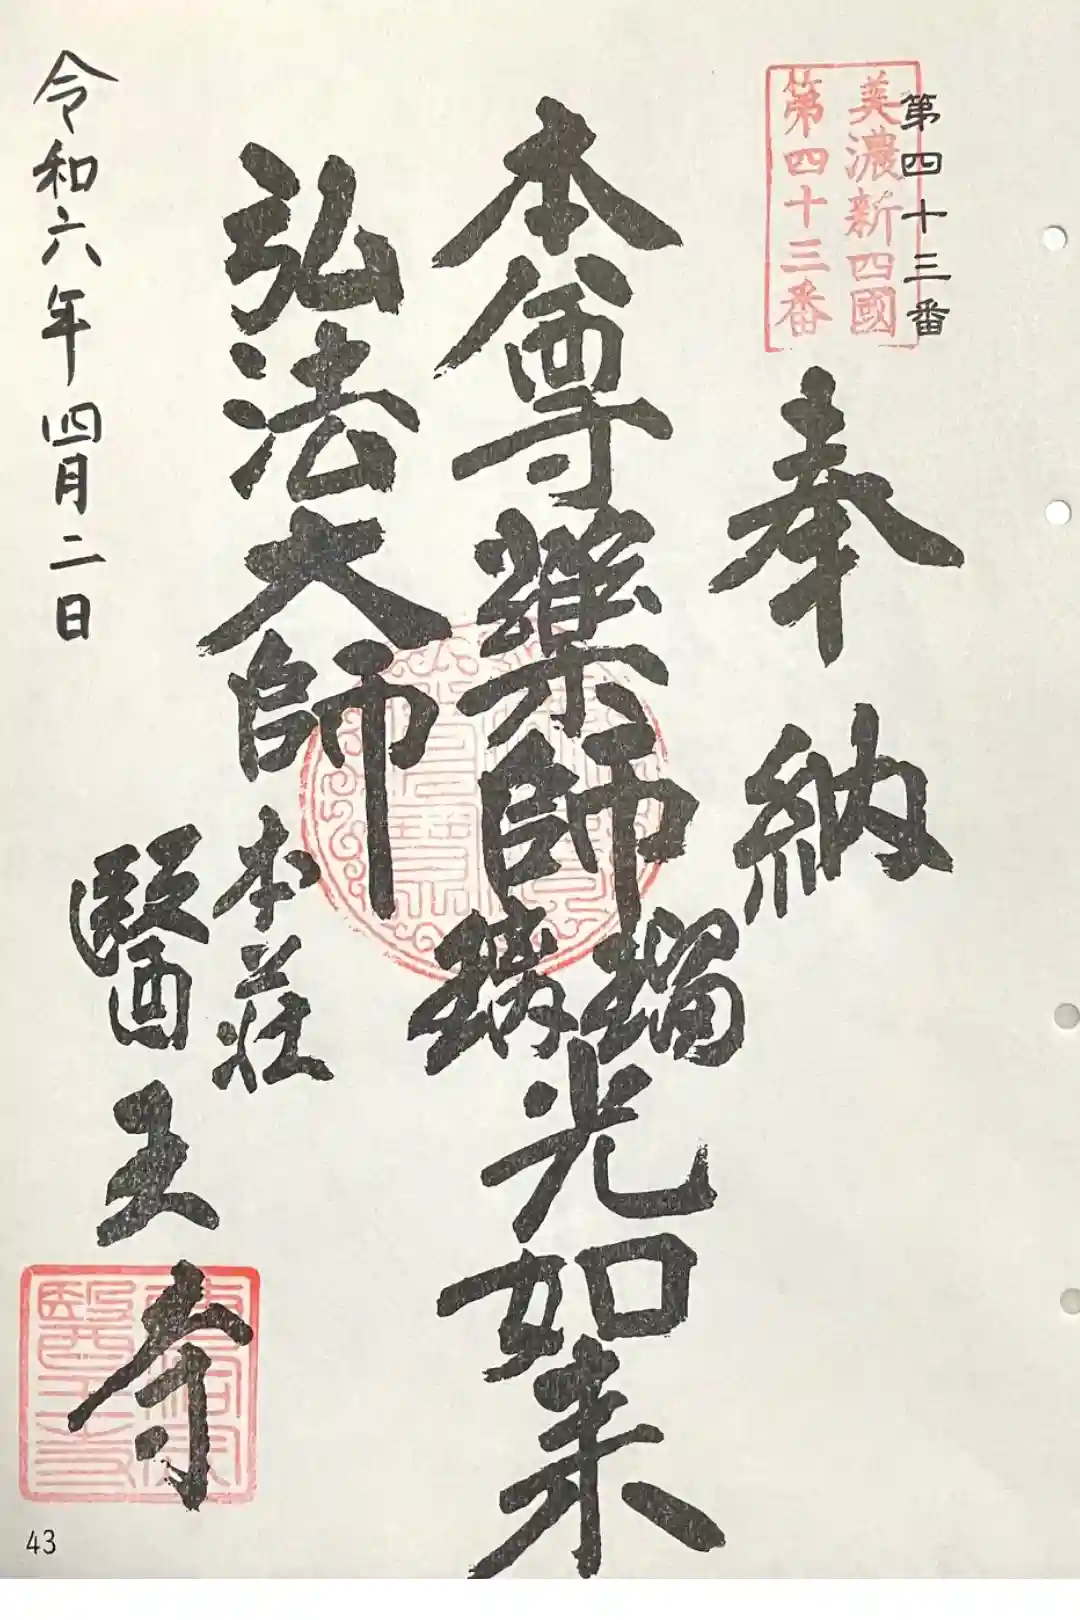 第四十三番
美濃新四國
第四十三番
奉納
本尊薬師瑠璃光如来
弘法大師
本荘
醫王寺
令和六年四月二日
43